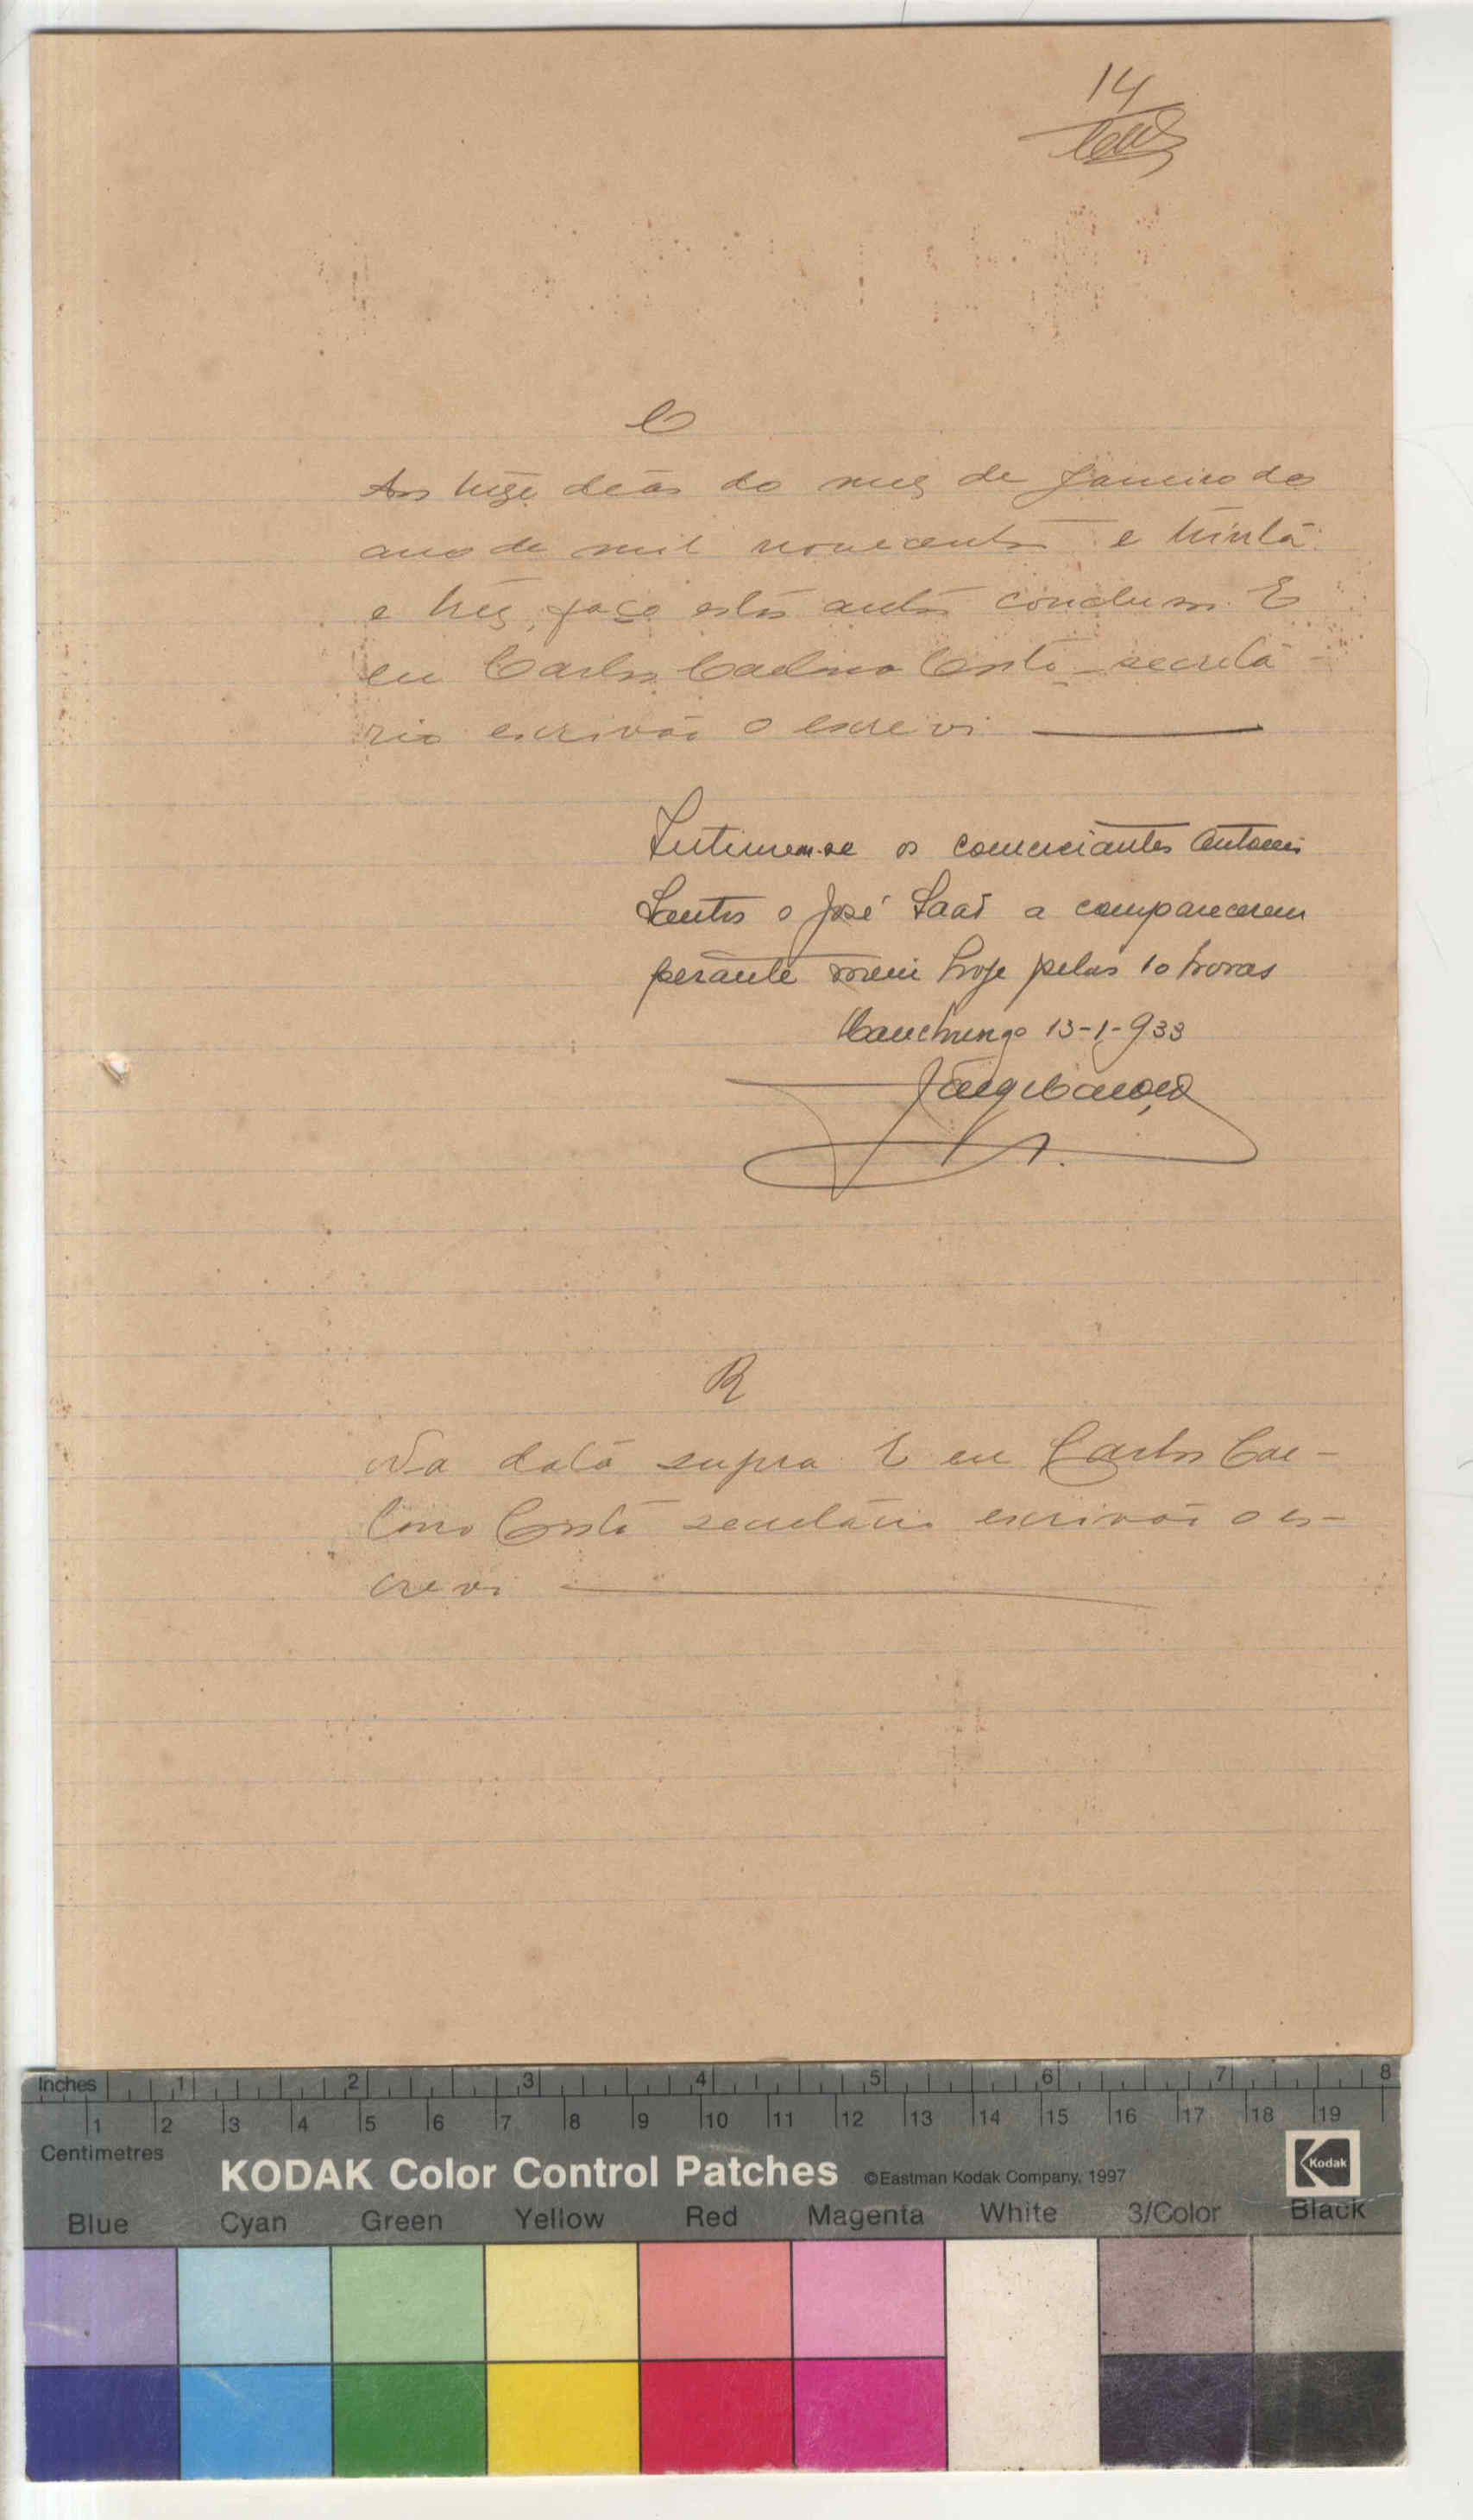 14
C
Aos treze dias do mez de Janeiro do
ano de mil novecentos e trinta
e trez, faço estes autos conclusos. E
eu Carlos Caelino Costa secretá
rio escrivão o escrevi
Intimem-se os comerciantes Antonio
Santos e José Saad a comparecerem
perante mim hoje pelas 10 horas
Canchungo 13-1-933
R
Na data supra E eu Carlos Cae-
lino Costa secretário escrivão o es-
crevi
Inches 1 2 3 4 5 6 7 8
1 2 3 4 5 6 7 8 9 10 11 12 13 14 15 16 17 18 19
Centimetres
KODAK Color Control Patches ©Eastman Kodak Company, 1997 Kodak
Blue Cyan Green Yellow Red Magenta White 3/Color Black